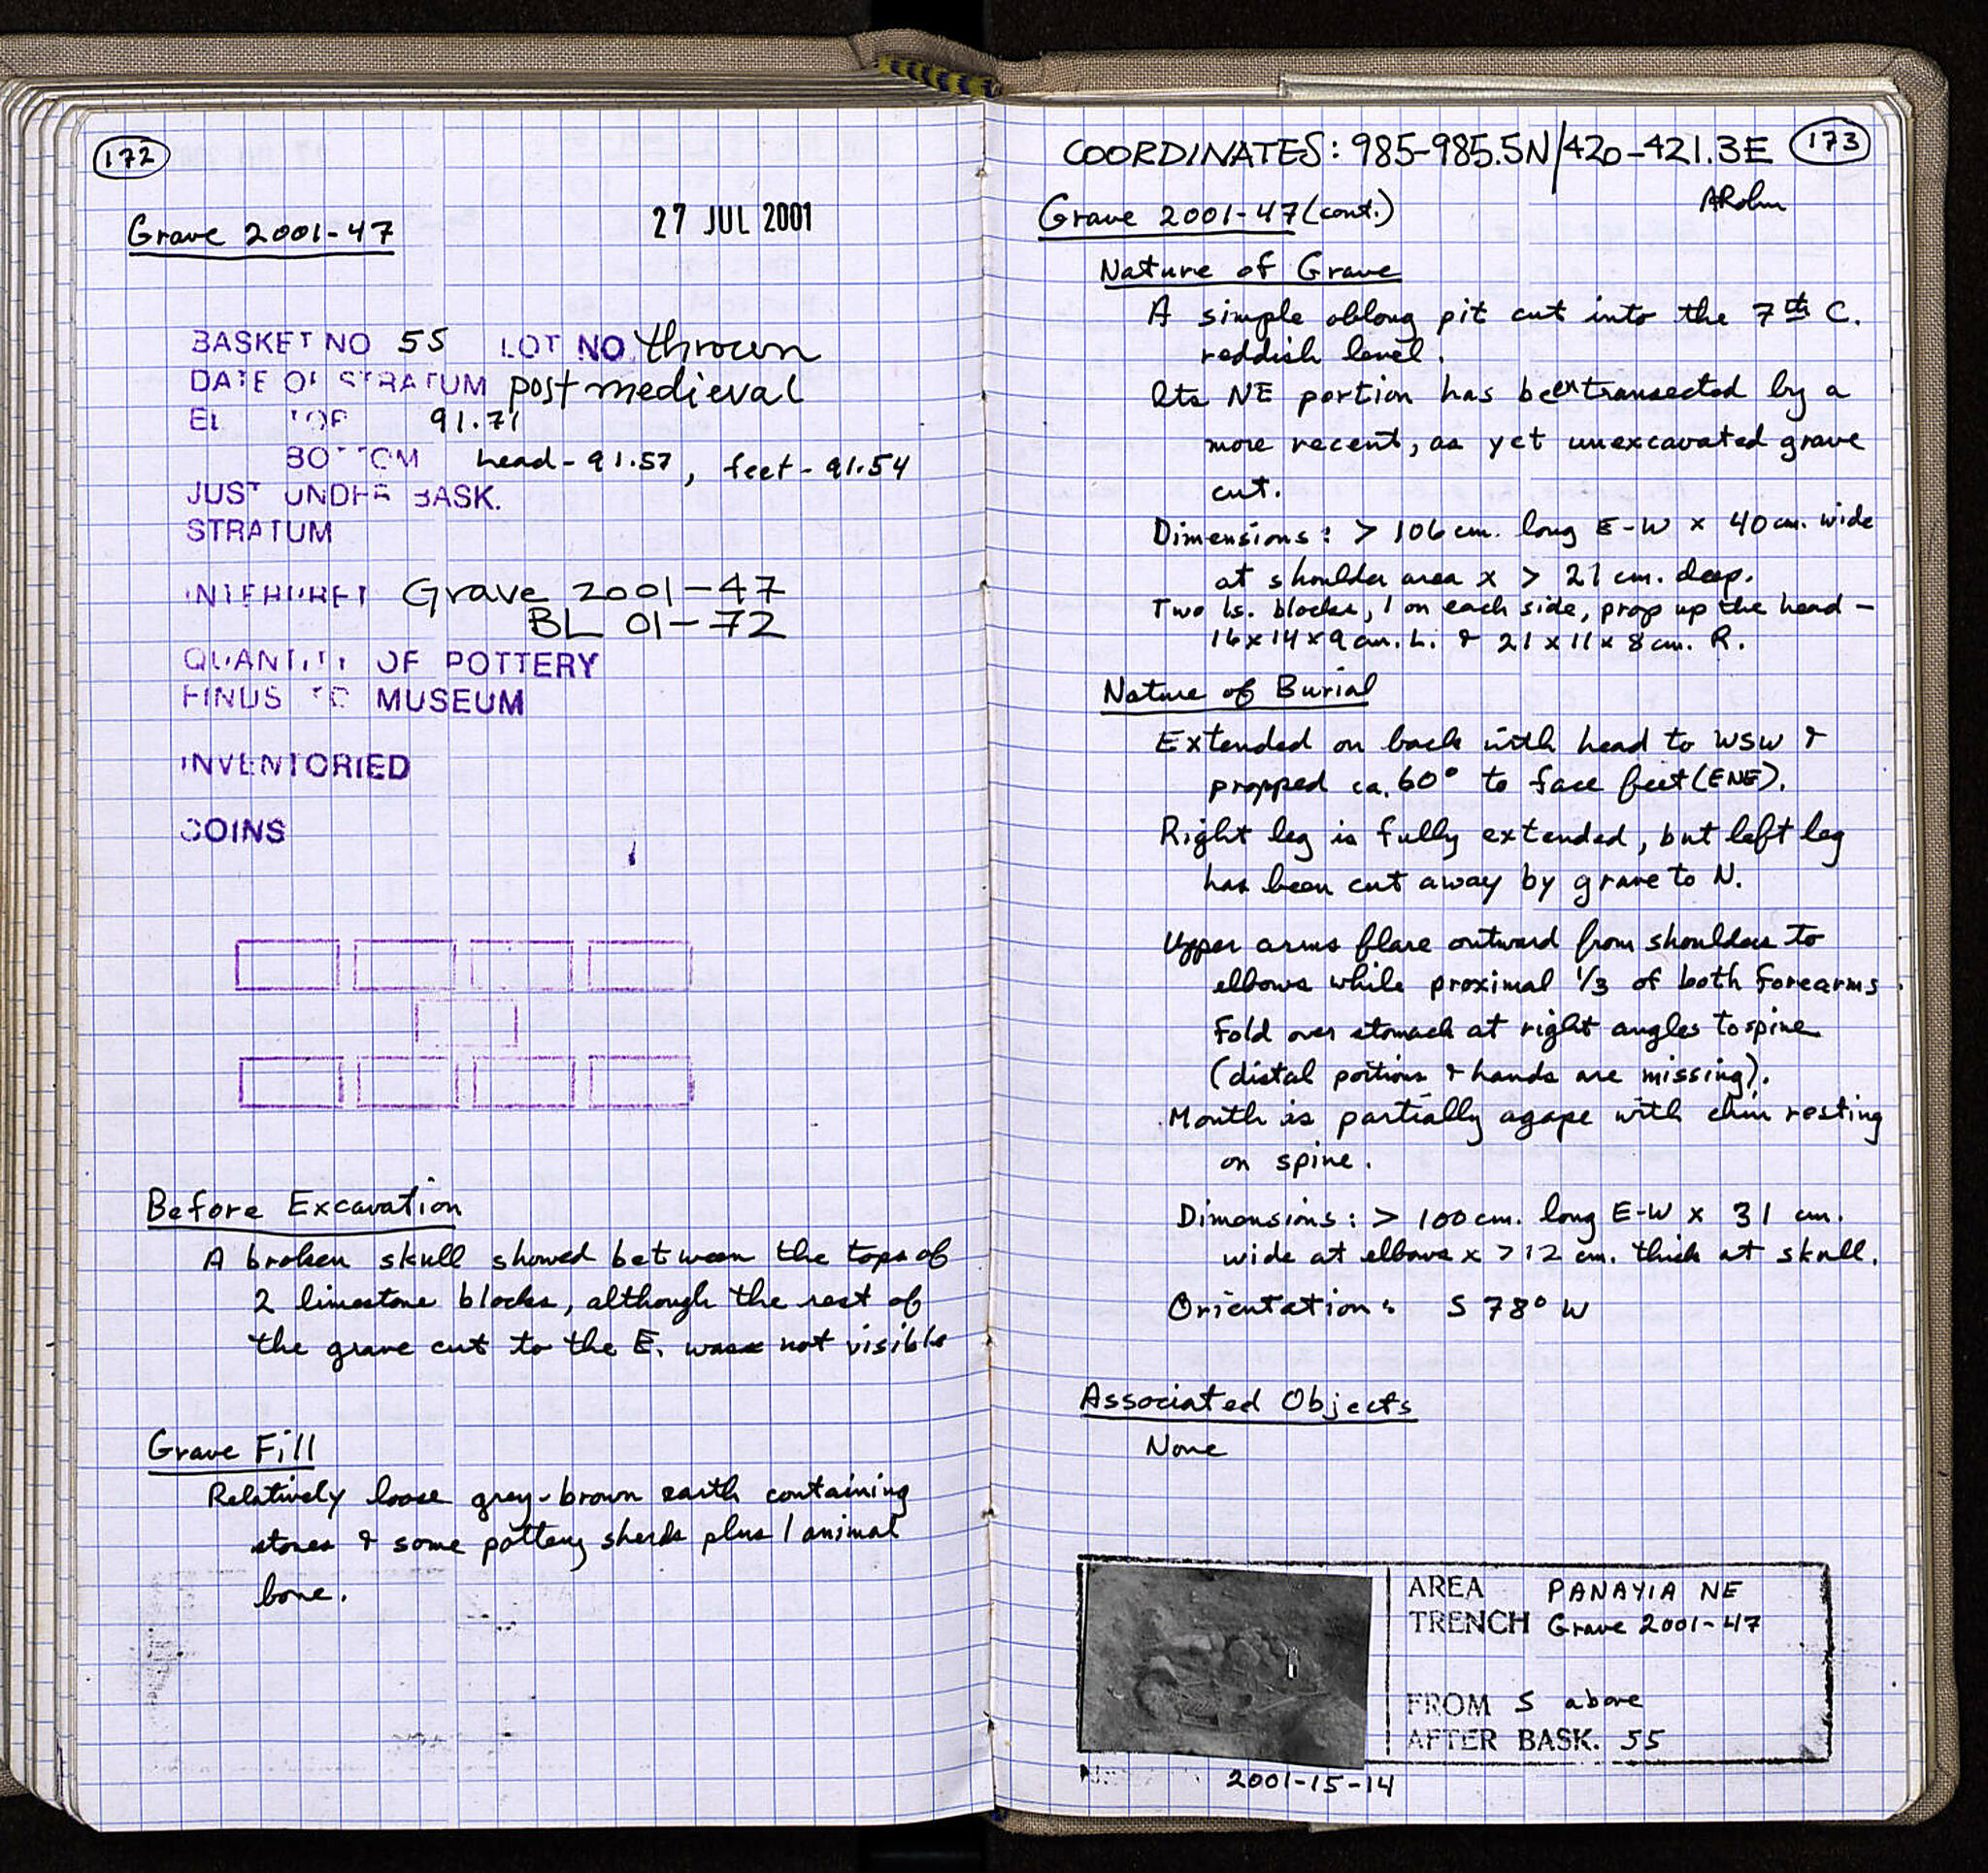 172
Grave 2001-47
27 JUL 2001
BASKET NO 55 LOT NO. thrown
DATE OF STRATUM post medieval
EL TOP 91.71
BOTTOM head - 91.57, feet - 91.54
JUST UNDER BASK.
STRATUM
INTERPRET Grave 2001-47
BL 01-72
QUANTITY OF POTTERY
FINDS TO MUSEUM
INVENTORIED
COINS
Before Excavation
A broken skull showed between the tops of
2 limestone blocks, although the rest of
the grave cut to the E. was not visible
Grave Fill
Relatively loose grey-brown earth containing
stones & some pottery sherds plus 1 animal
bone.
COORDINATES: 985-985.5N/420-421.3E
173
ARohn
Grave 2001-47 (cont.)
Nature of Grave
A simple oblong pit cut into the 7th C.
reddish level.
Its NE portion has been transected by a
more recent, as yet unexcavated grave
cut.
Dimensions: > 106 cm. long E-W x 40 cm. wide
at shoulder area x > 21 cm. deep.
Two ls. blocks, 1 on each side, prop up the head -
16 x 14 x 9 cm. L. & 21 x 11 x 8 cm. R.
Nature of Burial
Extended on back with head to WSW &
propped ca. 60° to face feet (ENE).
Right leg is fully extended, but left leg
has been cut away by grave to N.
Upper arms flare outward from shoulders to
elbows while proximal 1/3 of both forearms
fold over stomach at right angles to spine
(distal portions & hands are missing).
Mouth is partially agape with chin resting
on spine.
Dimensions: > 100 cm. long E-W x 31 cm.
wide at elbows x > 12 cm. thick at skull.
Orientation: S 78° W
Associated Objects
None
AREA PANAYIA NE
TRENCH Grave 2001-47
FROM S above
AFTER BASK. 55
2001-15-14